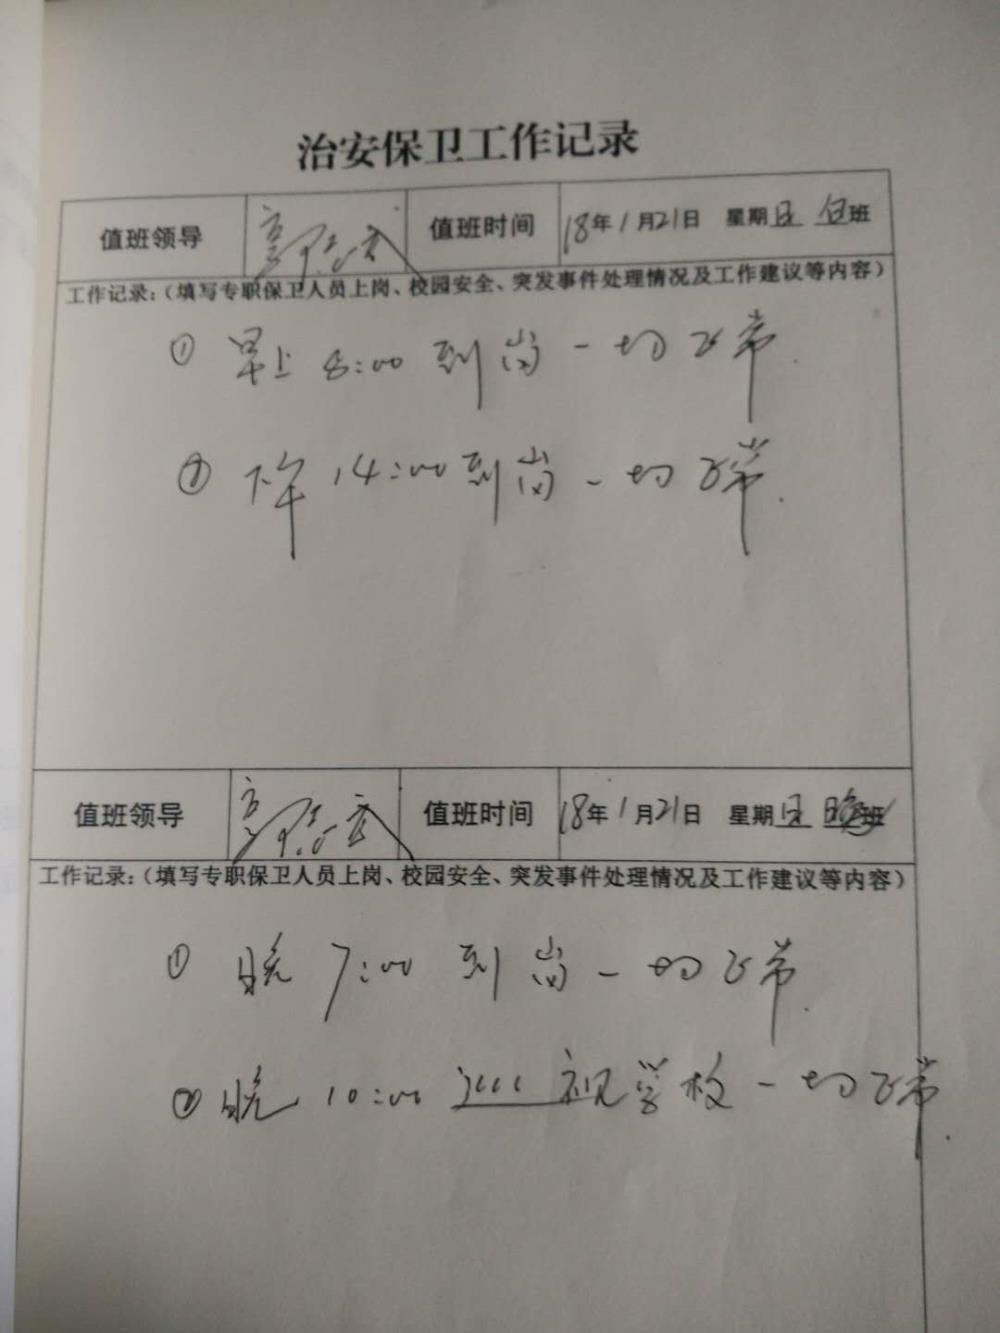 治安保卫工作记录
值班领导 值班时间 18年1月21日 星期日 白班
工作记录:(填写专职保卫人员上岗、校园安全、突发事件处理情况及工作建议等内容)
① 早上8:00到岗一切正常.
② 下午14:00到岗一切正常.
值班领导 值班时间 18年1月21日 星期日 晚班
工作记录:(填写专职保卫人员上岗、校园安全、突发事件处理情况及工作建议等内容)
① 晚7:00到岗一切正常.
② 晚10:00巡视学校一切正常.